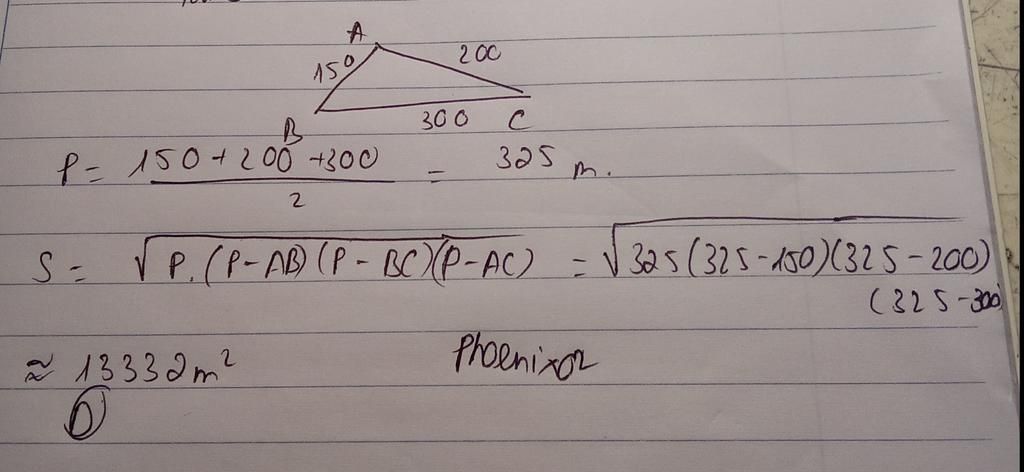 A
150 200
B 300 C
P = 150 + 200 + 300 / 2 = 325 m.
S = √P.(P-AB)(P-BC)(P-AC) = √325(325-150)(325-200)
(325-300)
≈ 13332m²
Phoenixor
D